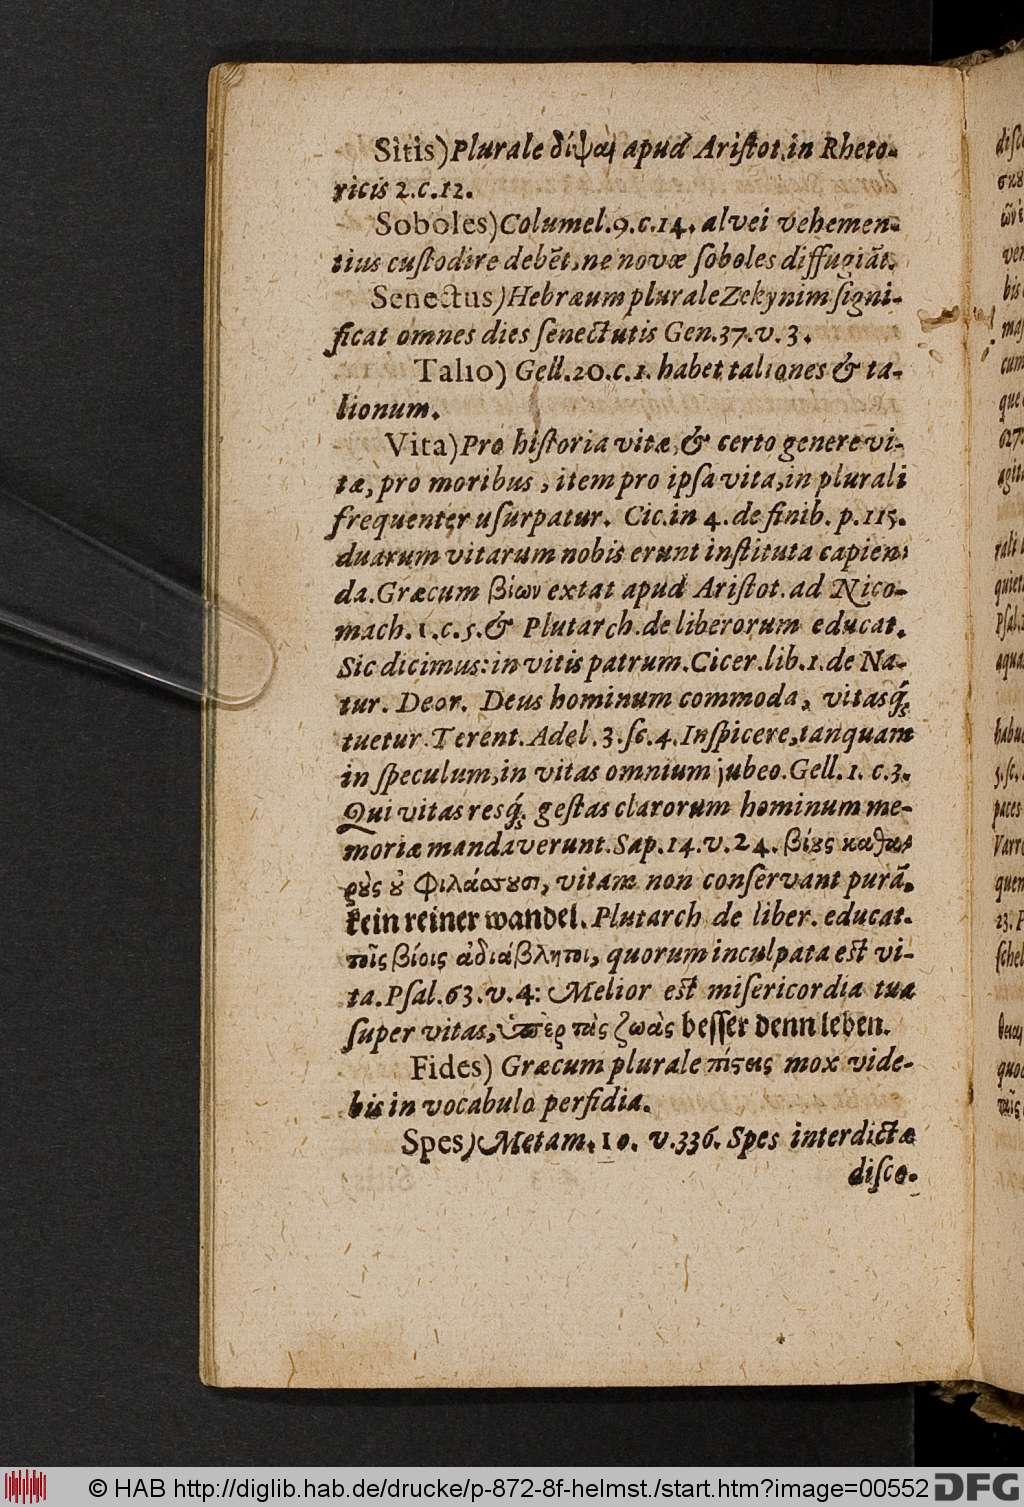 Sitis) Plurale δίψαι apud Ariſtot. in Rheto-
ricis 2. c. 12.
Soboles) Columel. 9. c. 14. alvei vehemen-
tius cuſtodire debēt, ne novæ ſoboles diffugiāt.
Senectus) Hebræum plurale Zekynim ſigni-
ficat omnes dies ſenectutis Gen. 37. v. 3.
Talio) Gell. 20. c. 1. habet taliones & ta-
lionum.
Vita) Pro hiſtoria vitæ, & certo genere vi-
tæ, pro moribus, item pro ipſa vita, in plurali
frequenter uſurpatur. Cic. in 4. de finib. p. 115.
duarum vitarum nobis erunt inſtituta capien-
da. Græcum βίων extat apud Ariſtot. ad Nico-
mach. 1. c. 5. & Plutarch. de liberorum educat.
Sic dicimus: in vitis patrum. Cicer. lib. 1. de Na-
tur. Deor. Deus hominum commoda, vitasq́;
tuetur. Terent. Adel. 3. ſc. 4. Inſpicere, tanquam
in ſpeculum, in vitas omnium jubeo. Gell. 1. c. 3.
Qui vitas resq́; geſtas clarorum hominum me-
moriæ mandaverunt. Sap. 14. v. 24. βίους καθα-
ροὺς οὐ φιλάσσουσι, vitam non conſervant purā.
kein reiner wandel. Plutarch de liber. educat.
τοῖς βίοις ἀδιάβλητοι, quorum inculpata eſt vi-
ta. Pſal. 63. v. 4: Melior eſt miſericordia tua
ſuper vitas, ὑπὲρ τὰς ζωὰς beſſer denn leben.
Fides) Græcum plurale πίστεις mox vide-
bis in vocabulo perfidia.
Spes) Metam. 10. v. 336. Spes interdictæ
diſce-
© HAB http://diglib.hab.de/drucke/p-872-8f-helmst./start.htm?image=00552
DFG